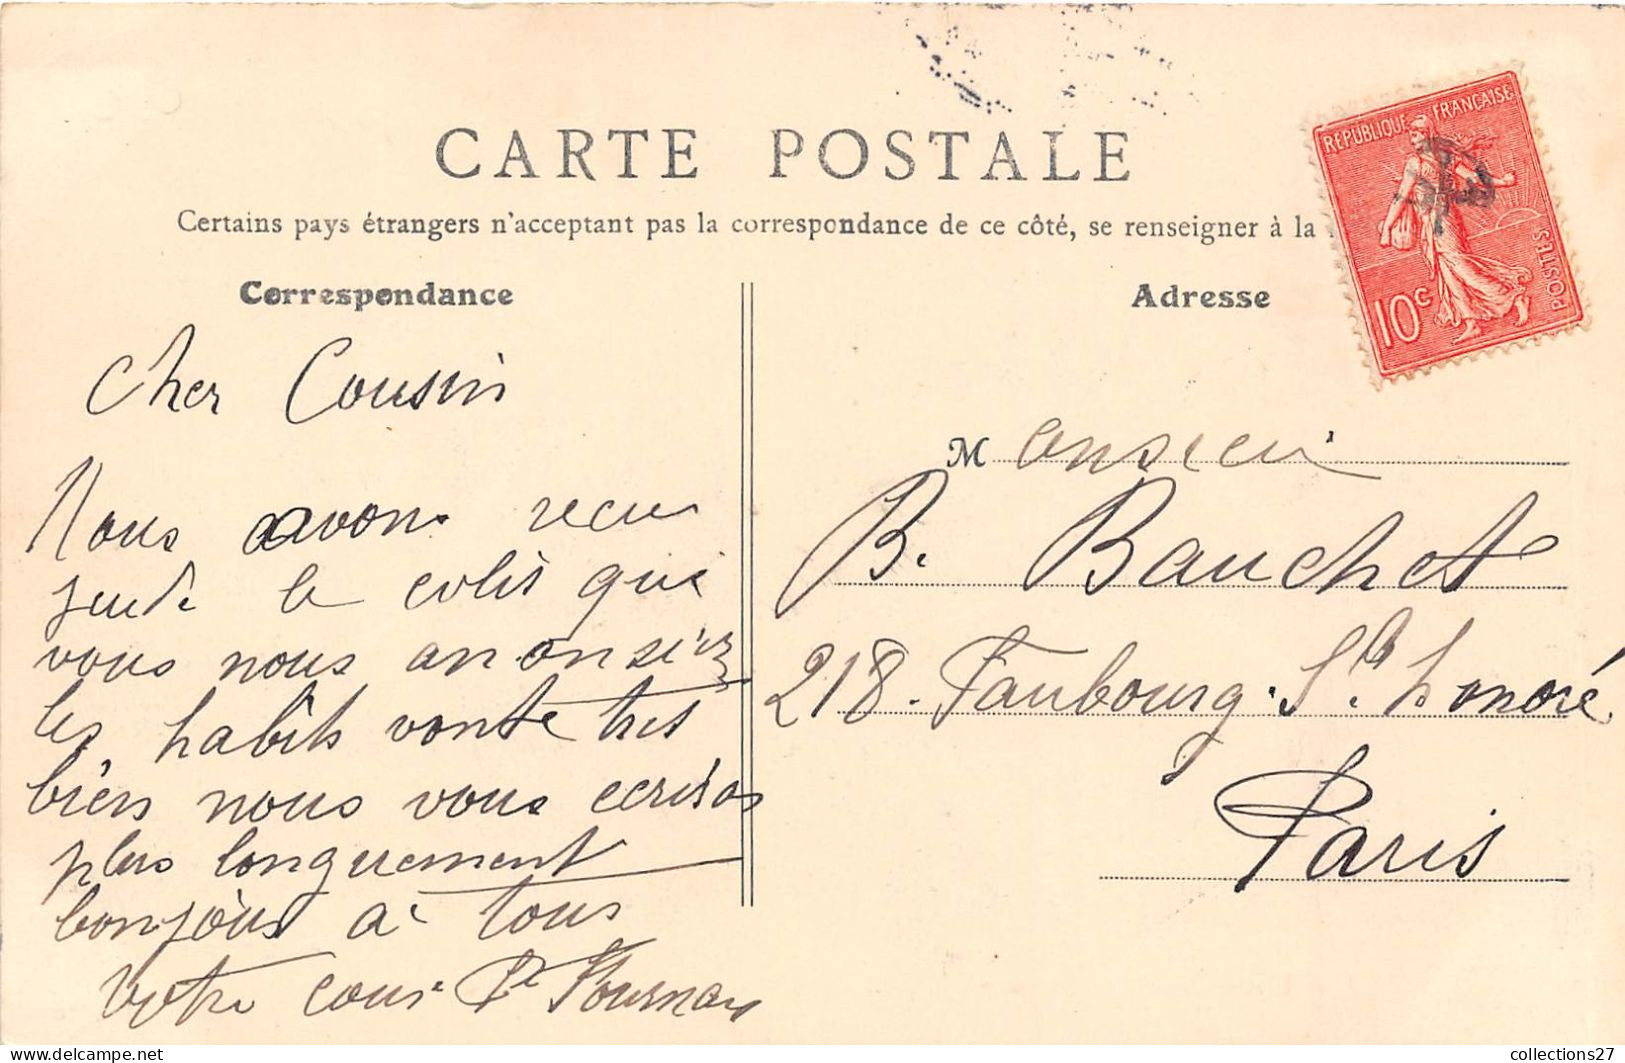 CARTE POSTALE
Certains pays étrangers n'acceptant pas la correspondance de ce côté, se renseigner à la
Correspondance
Adresse
REPUBLIQUE FRANÇAISE
POSTES
10c
Cher Cousin
Nous avons recu
jeudi le colis que
vous nous anonsiez
les habits vonte tres
bien nous vous ecrirons
plus longuement
bonjour à tous
Votre cous
Monsieur
B. Bauchet
218. Faubourg. St. honoré
Paris
collections27